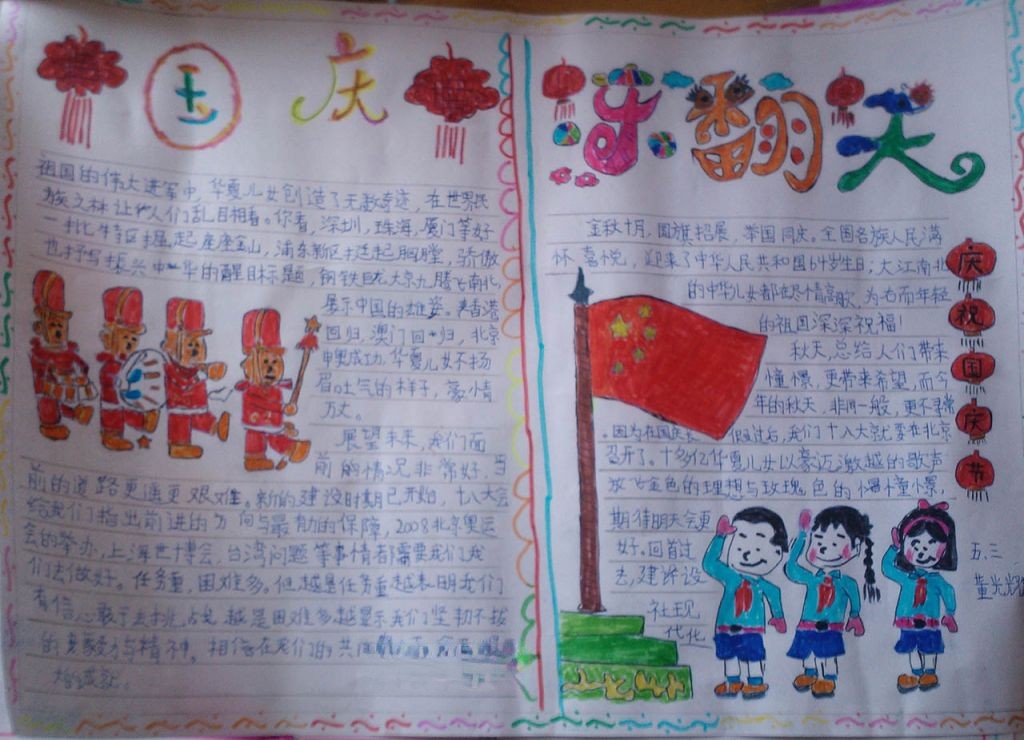 国庆
祖国的伟大进军中，华夏儿女创造了无数奇迹，在世界民
族之林让他人们乱目相看。你看，深圳，珠海，厦门等好
一批特区掘起座座金山，浦东新区挺起胸膛，骄傲
也抒写振兴中华的醒目标题，钢铁巨龙京九腾飞南北，
展示中国的雄姿。来香港
回归，澳门回归，北京
申奥成功，华夏儿女不扬
眉吐气的样子，豪情
万丈。
展望未来，我们面
前的情况非常好，当
前的道路更遥更艰难。新的建设时期已开始，十八大会
给我们指出前进的方向与最有力的保障，2008北京奥运
会的举办，上海世博会，台湾问题等事情者都需要我们我
们去做好。任务重，困难多，但越是任务重越表明我们
有信心敢于去挑战越是困难多越显示我们坚韧不拔
的毅力与精神，相信在我们的共同
翻天
金秋十月，国旗招展，举国同庆。全国各族人民满
怀喜悦，迎来了中华人民共和国64岁生日，大江南北
的中华儿女都在尽情高歌，为古而年轻
的祖国深深祝福！
秋天，总给人们带来
憧憬，更带来希望，而今
年的秋天，非同一般，更不寻常
。因为在国庆长假过后，我们十八大就要在北京
召开了。十多亿华夏儿女以豪迈激越的歌声
放飞金色的理想与玫瑰色的憧憬，
期待明天会更
好。回首过
去，建设
社现
代化
庆祝国庆节
五.三